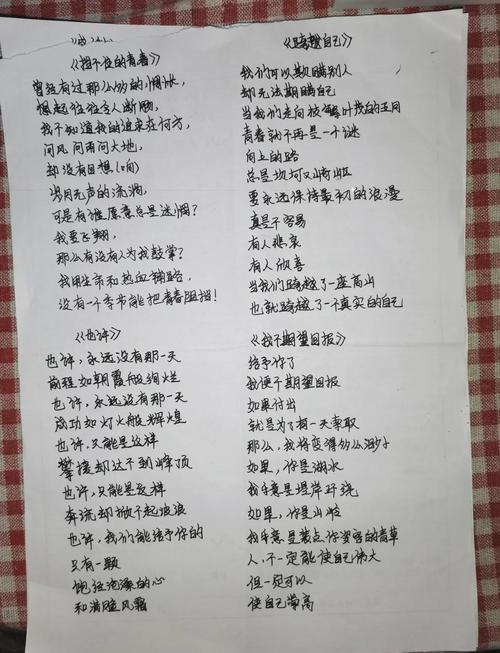 《挡不住的青春》
曾经有过那么多的惆怅,
想起往往令人断肠,
我不知道我的追求在何方,
问风问雨问大地,
却没有回想(响)
岁月无声的流淌,
可是有谁愿意总是迷惘?
我要飞翔,
那么有没有人为我鼓掌?
我用生命和热血铺路,
没有一个季节能把青春阻挡!
《也许》
也许,永远没有那一天
前程如朝霞般绚烂
也许,永远没有那一天
成功如灯火般辉煌
也许,只能是这样
攀援却达不到峰顶
也许,只能是这样
奔流却掀不起波浪
也许,我们能给予你的
只有一颗
饱经沧桑的心
和满脸风霜
《跨越自己》
我们可以欺瞒别人
却无法欺瞒自己
当我们走向枝繁叶茂的五月
青春就不再是一个谜
向上的路
总是坎坷又崎岖
要永远保持最初的浪漫
真是不容易
有人悲哀
有人欣喜
当我们跨越了一座高山
也就跨越了一个真实的自己
《我不期望回报》
给予你了
我便不期望回报
如果付出
就是为了有一天索取
那么,我将变得多么渺小
如果,你是湖水
我乐意是堤岸环绕
如果,你是山岭
我乐意是装点你姿容的青草
人,不一定能使自己伟大
但一定可以
使自己崇高